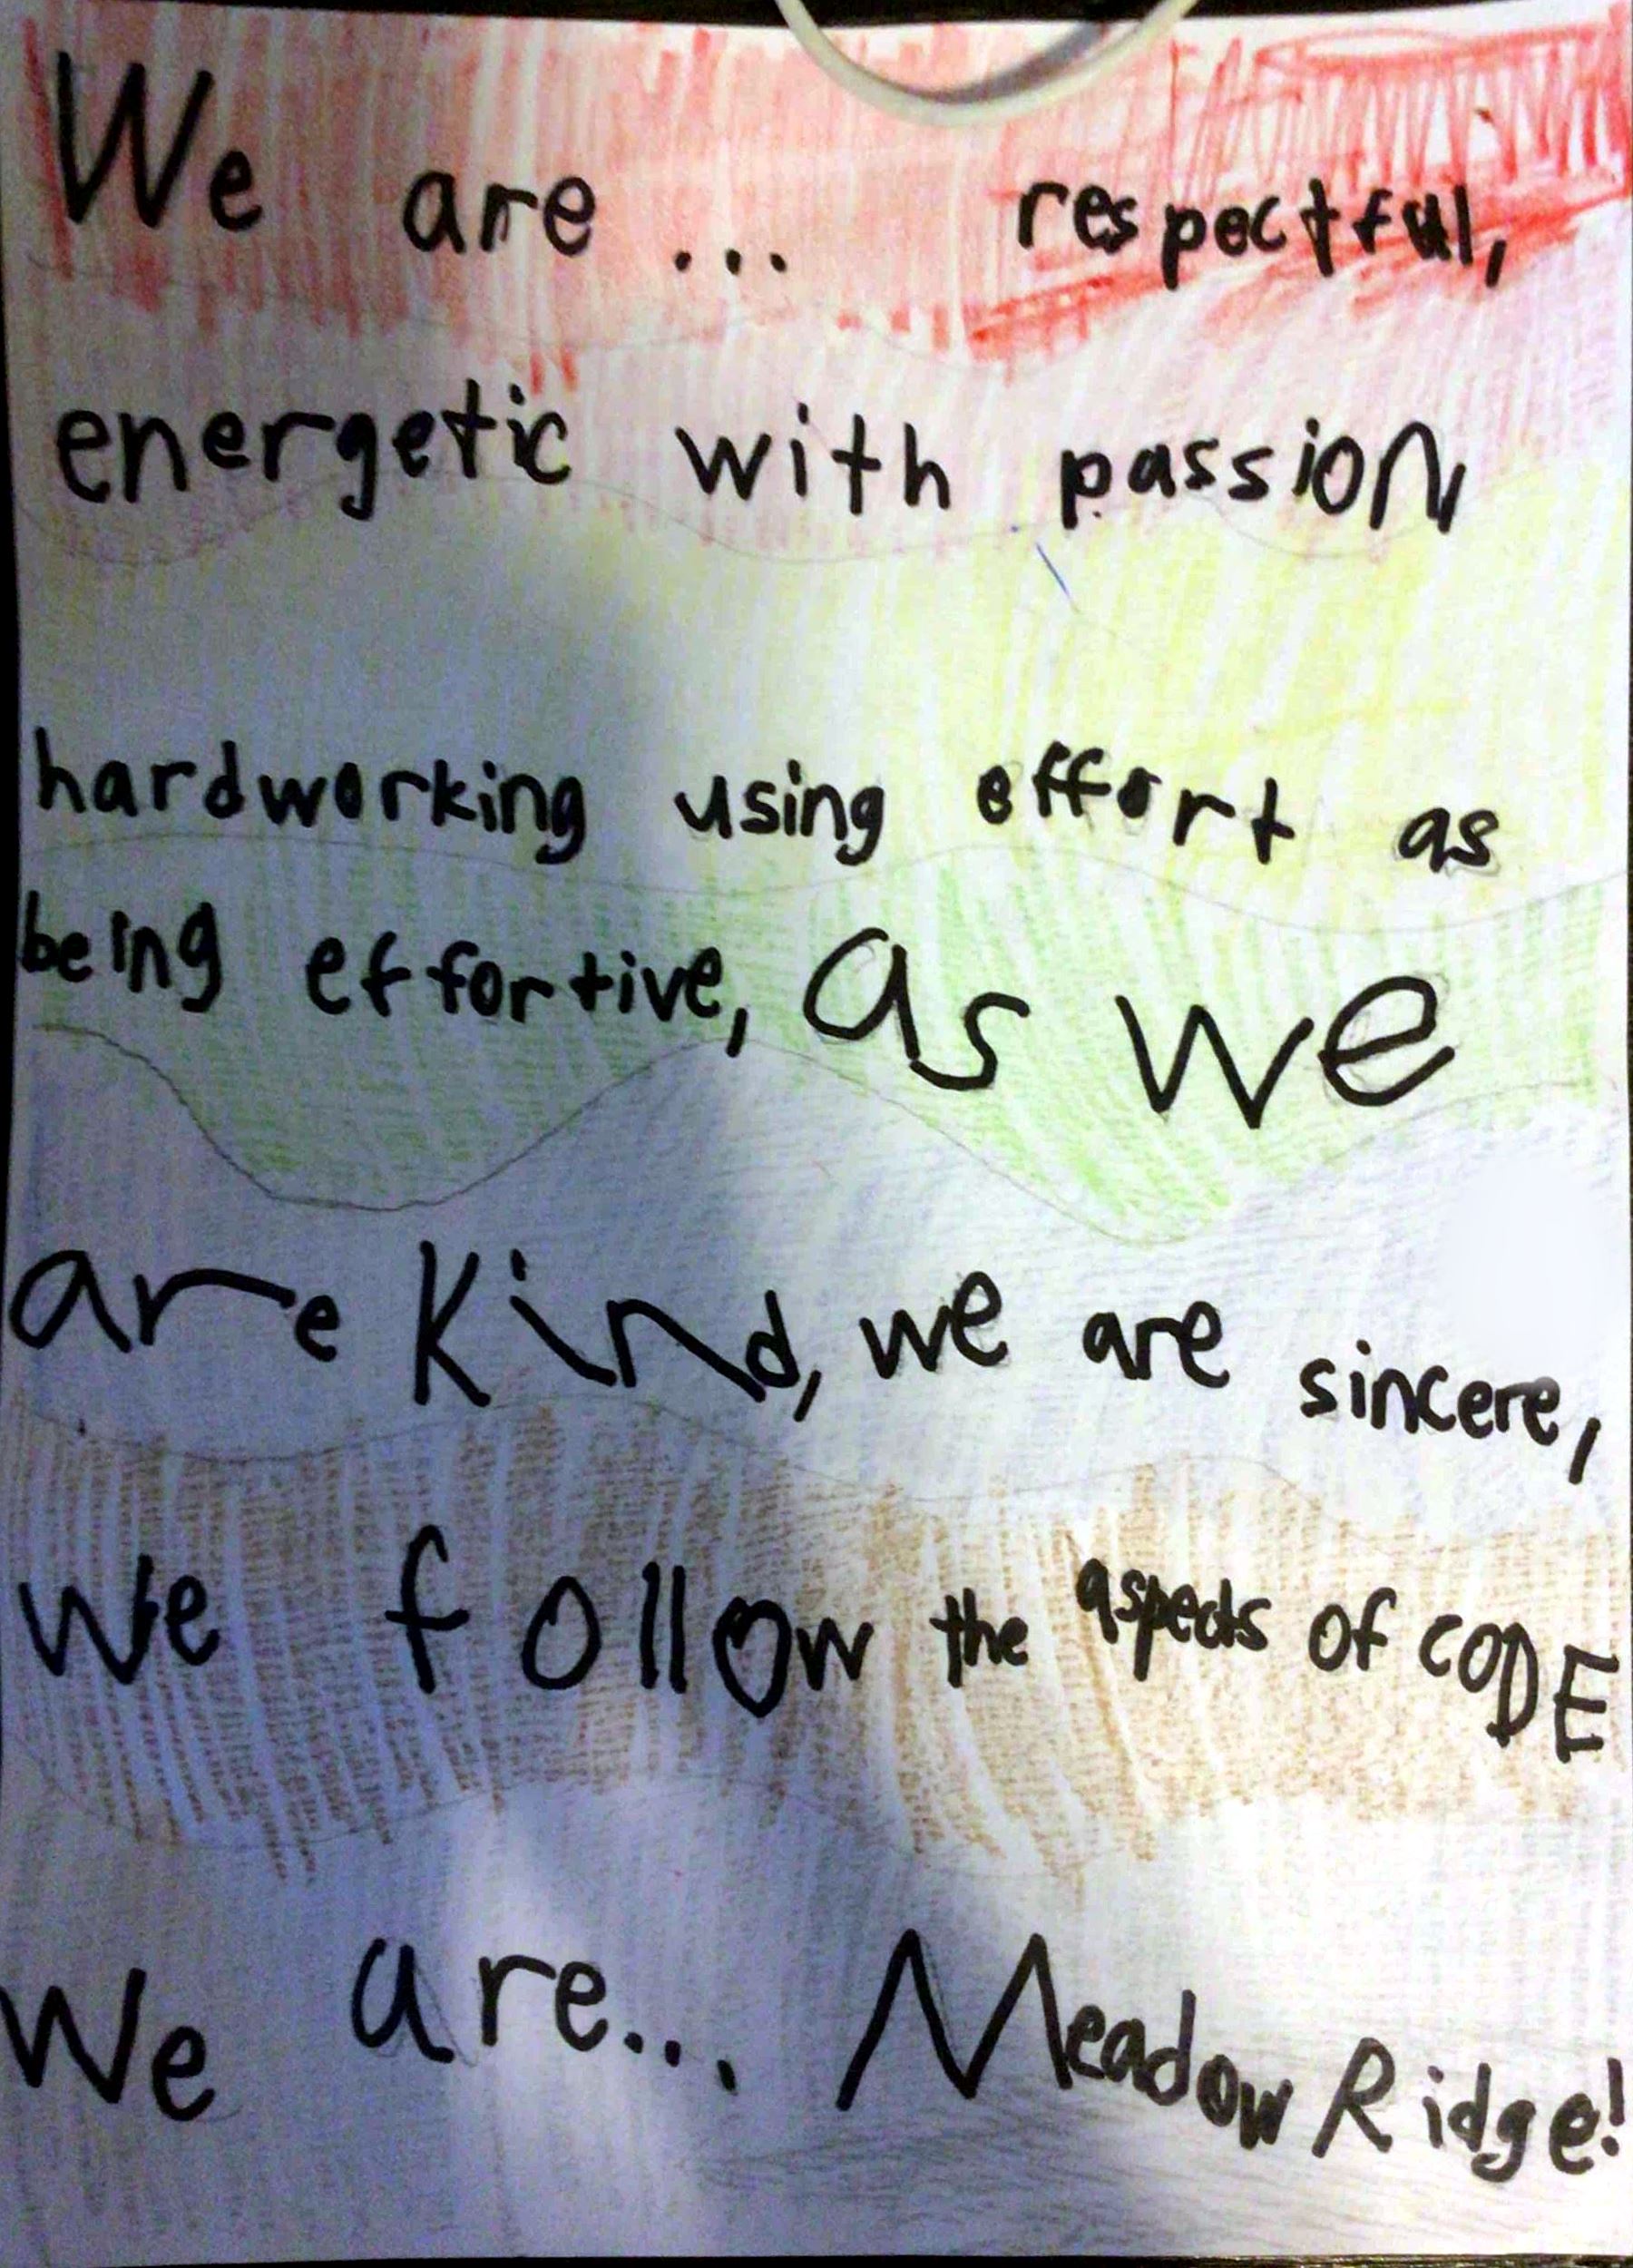 We are ... respectful,
energetic with passion
hardworking using effort as
being effortive, as we
are kind, we are sincere,
we follow the aspects of CODE
We are... Meadow Ridge!